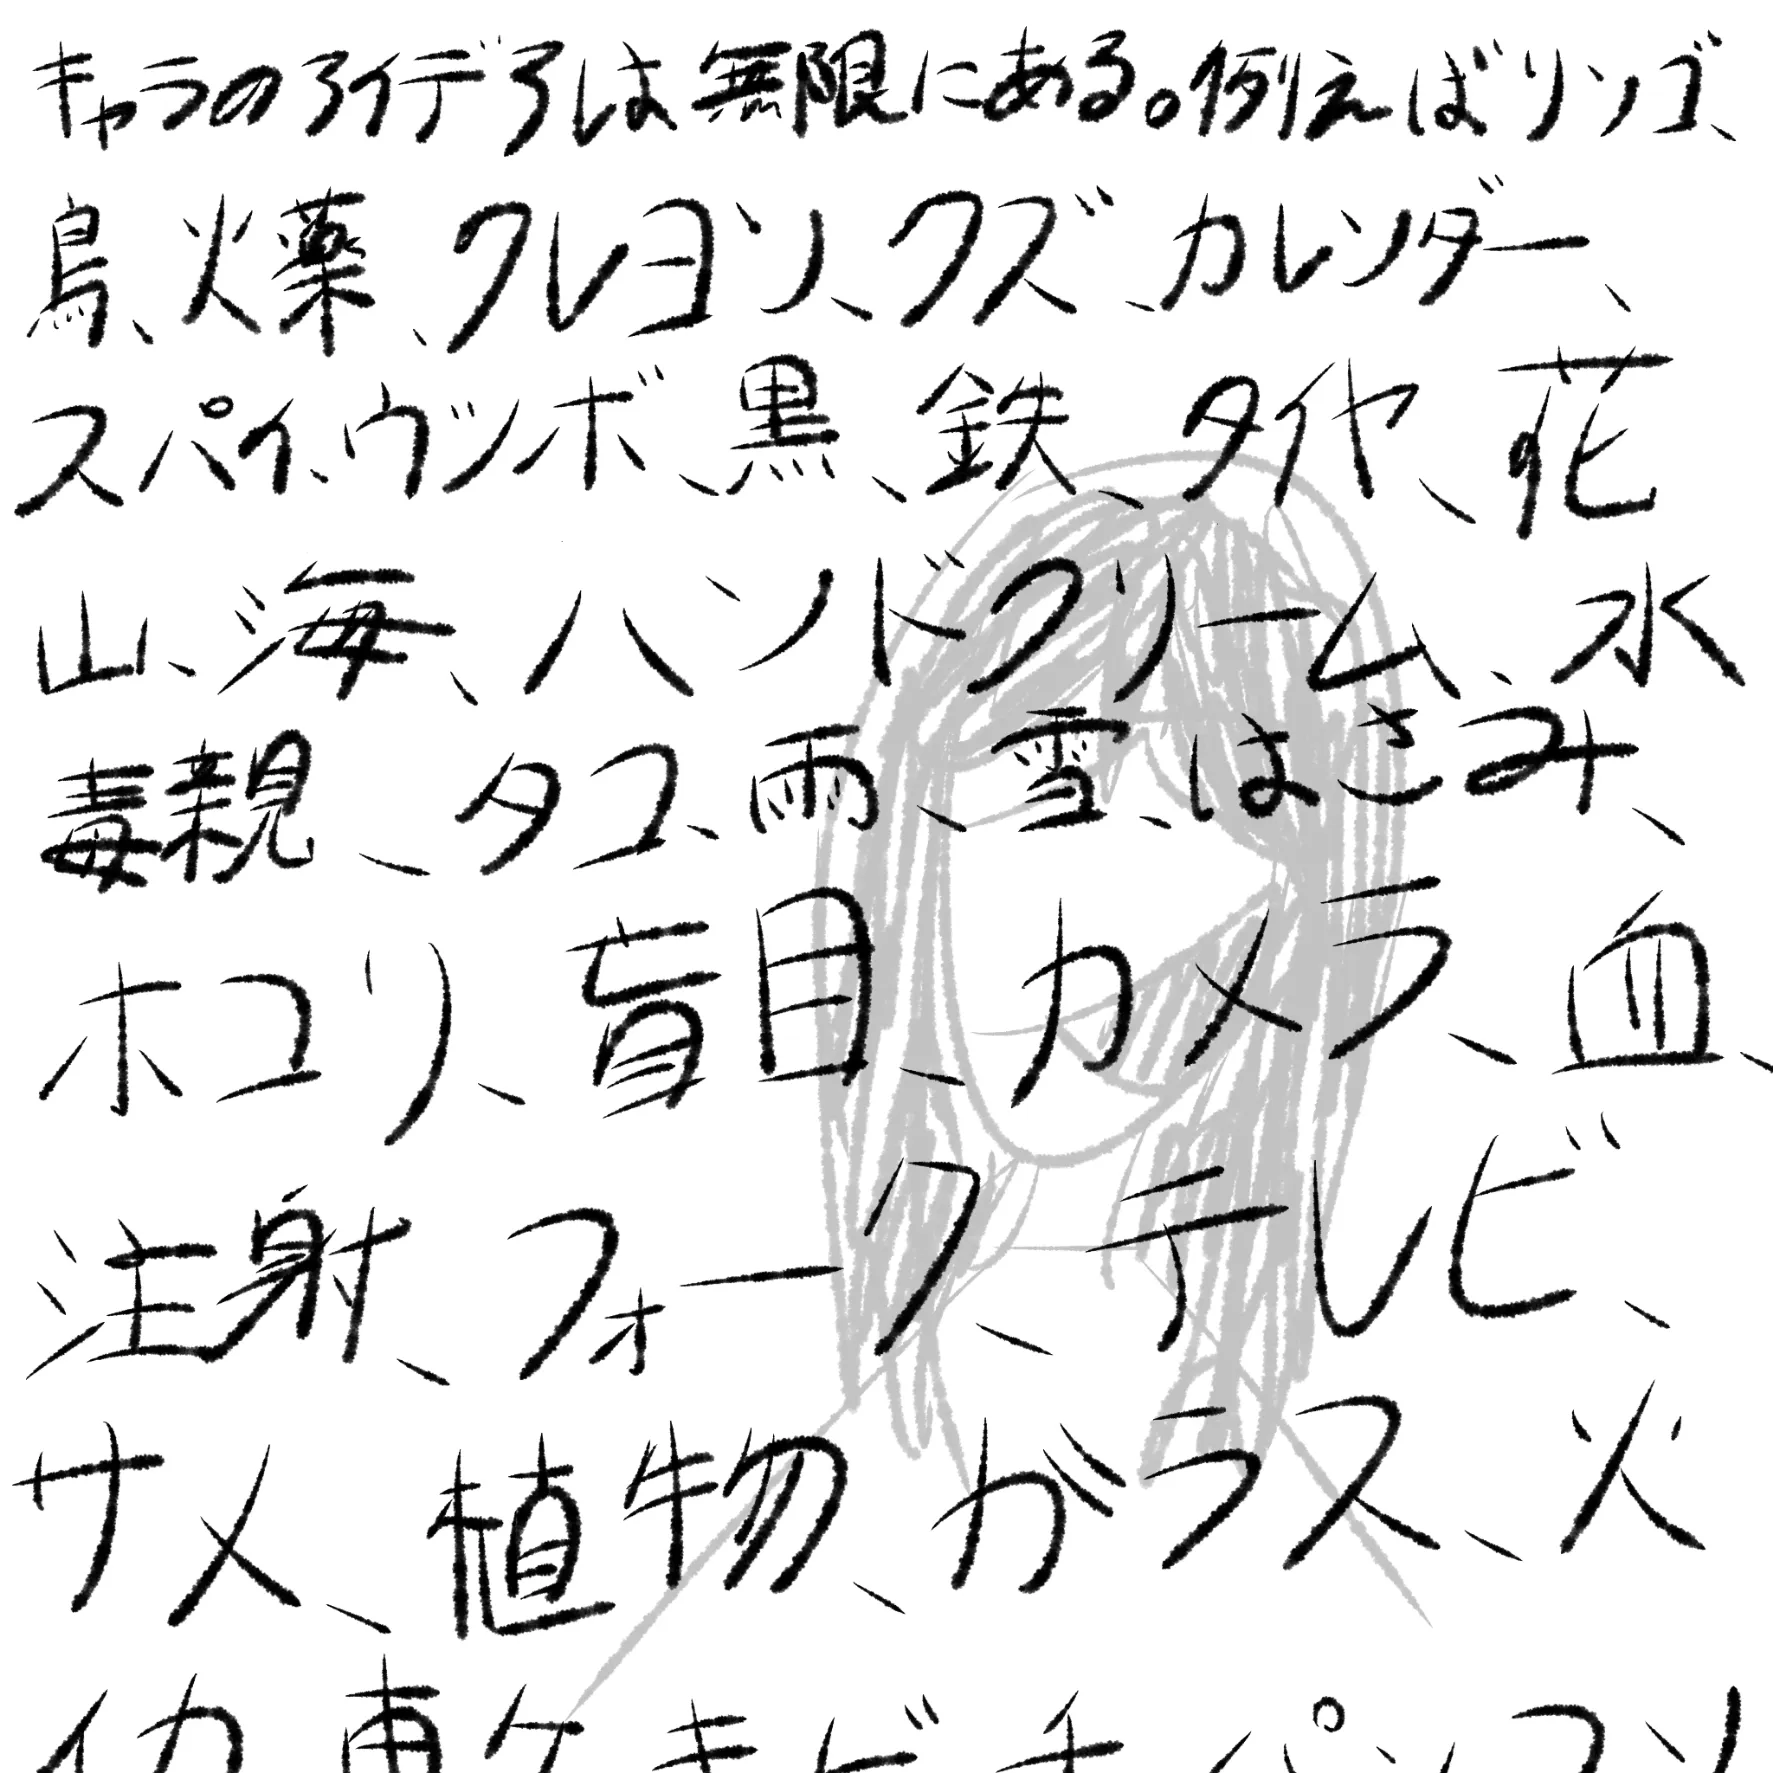 キャラのアイデアは無限にある。例えばリンゴ、
鳥、火薬、クレヨン、クズ、カレンダー、
スパイ、ウツボ、黒、鉄、タイヤ、花
山、海、ハンドクリーム、水
毒親、タコ、雨、雪、はさみ、
ホコリ、盲目、カメラ、血、
注射、フォーク、テレビ、
サメ、植物、ガラス、火